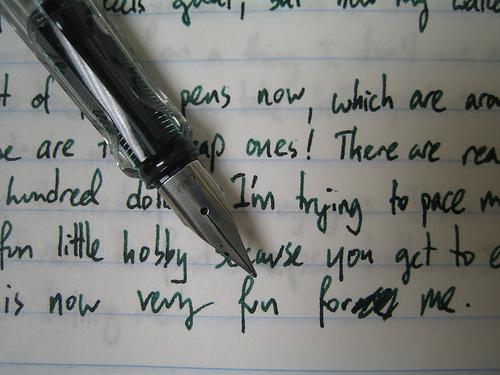 feels great, but now my walle
t of pens now, which are arou
e are ap ones! There are rea
hundred dol I'm trying to pace m
fun little hobby because you get to e
is now very fun for me.